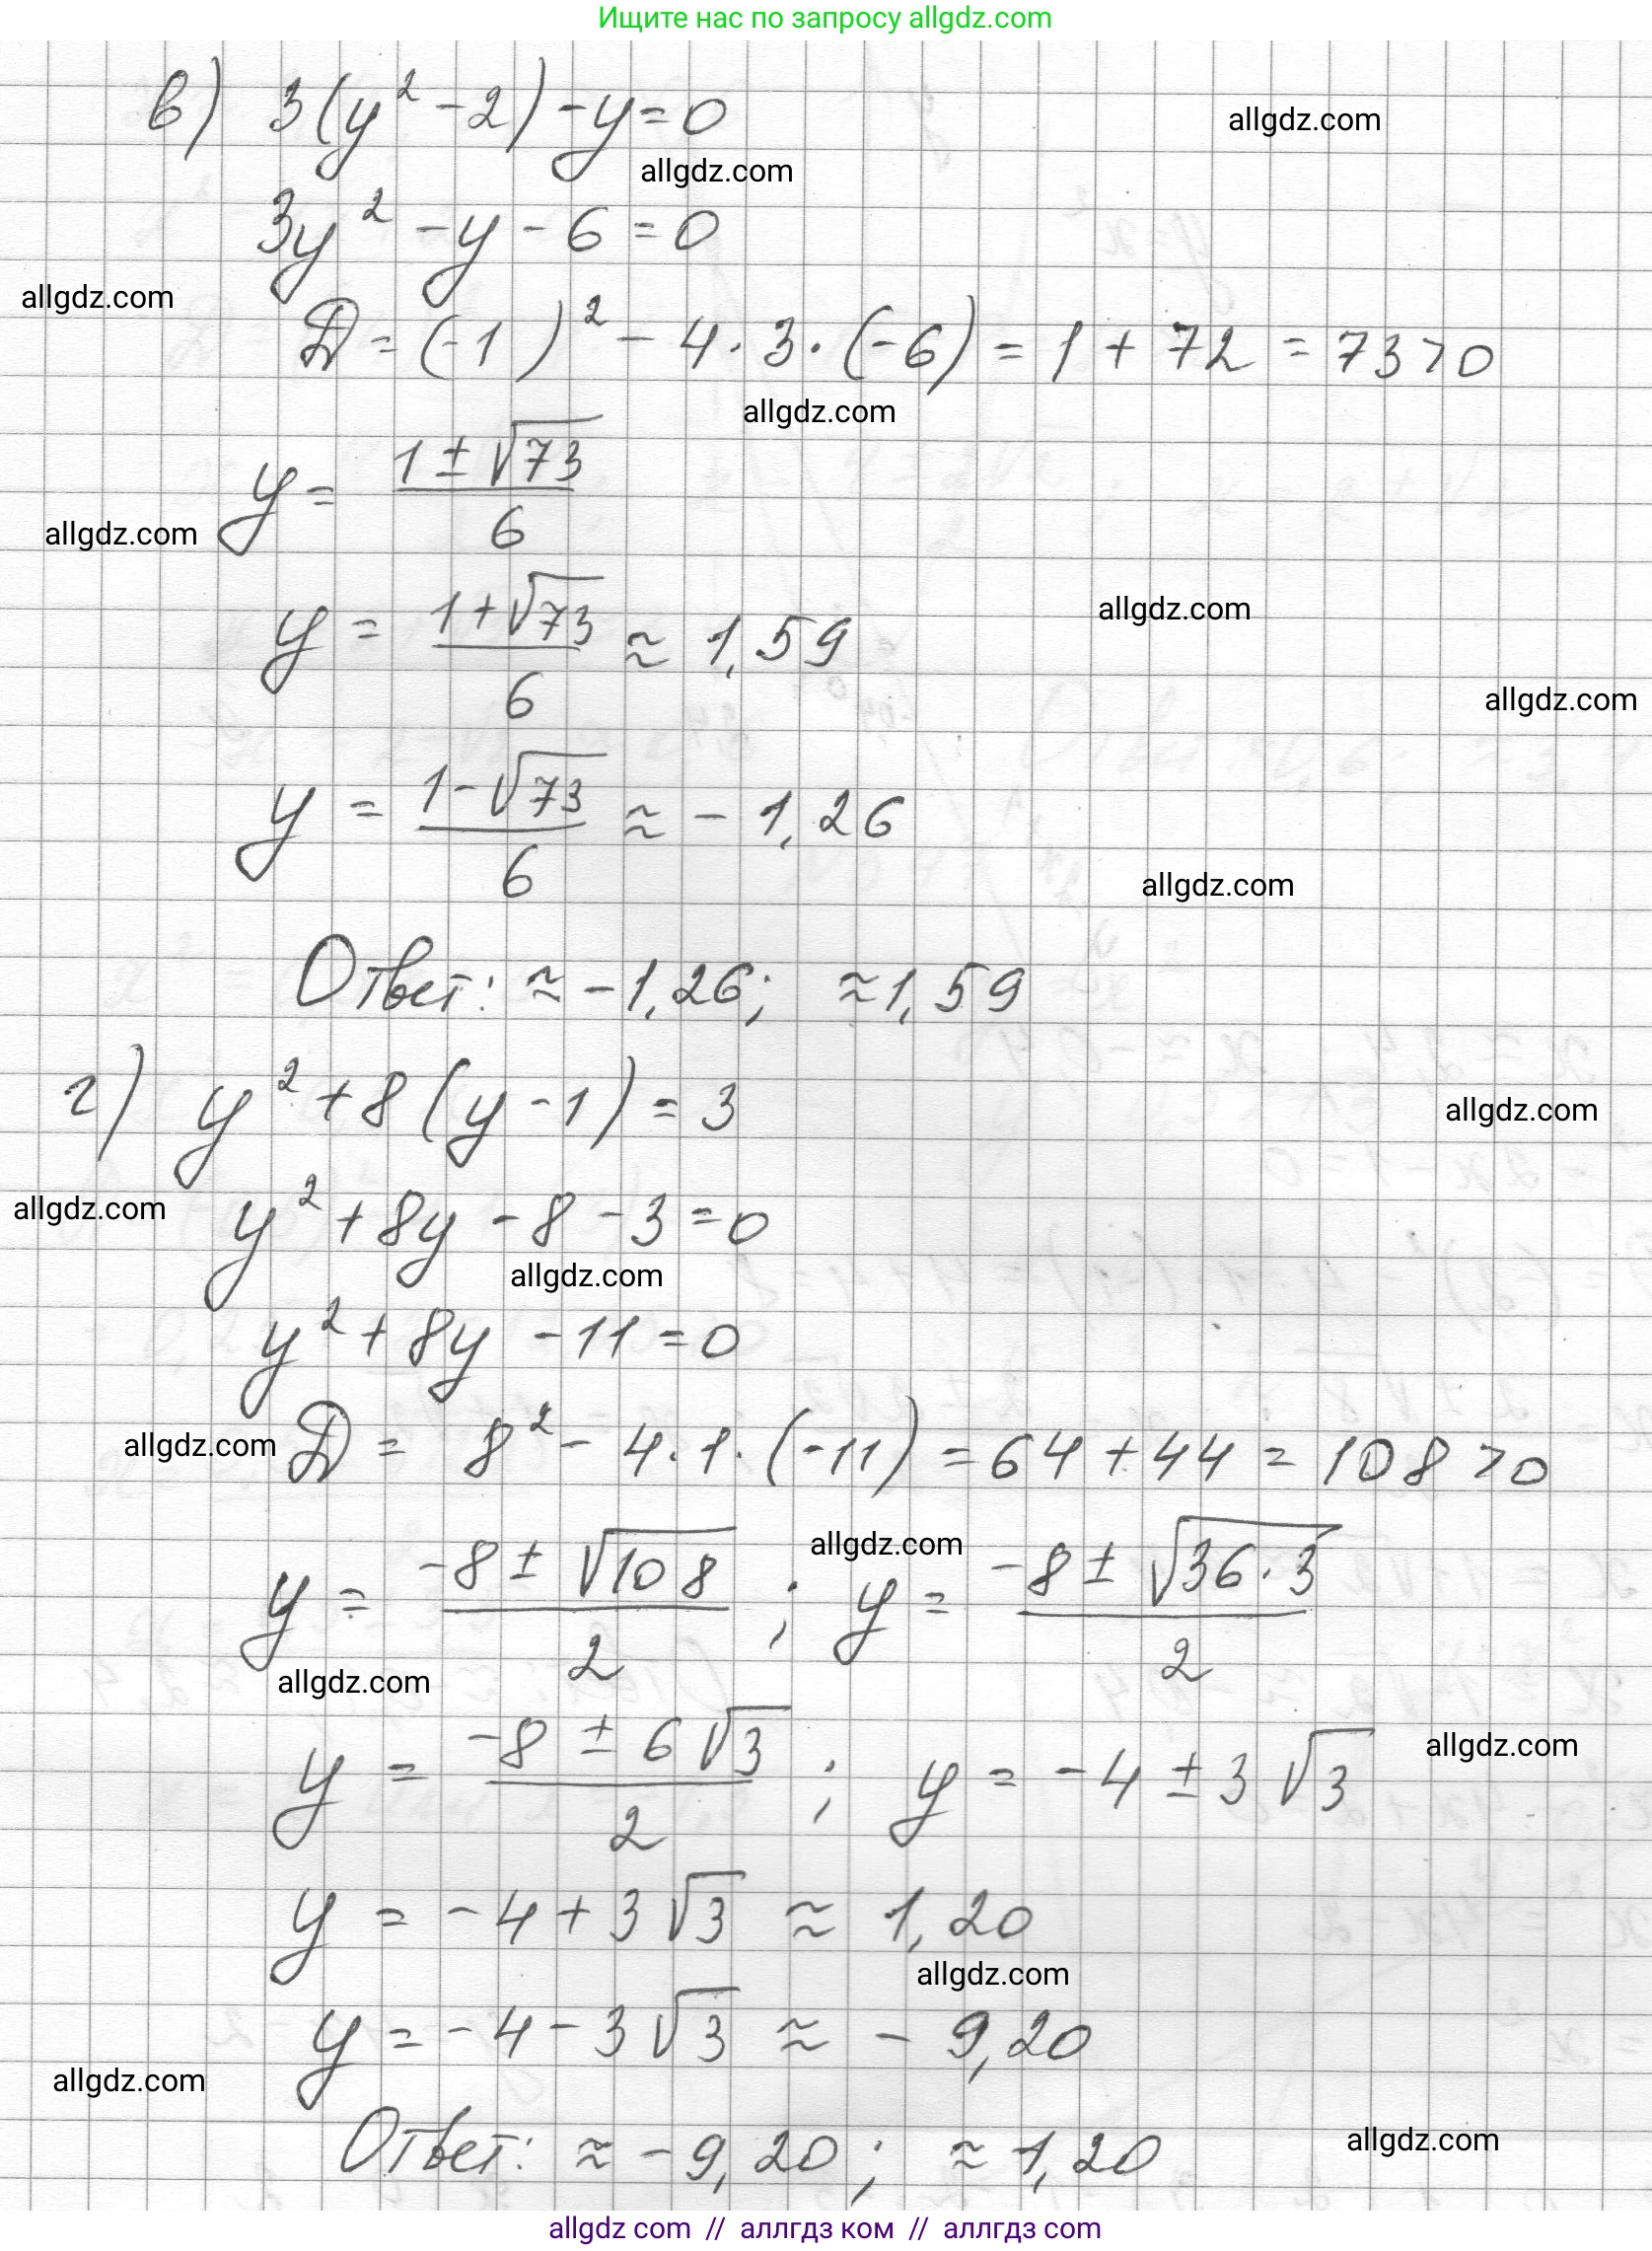 Ищите нас по запросу allgdz.com
в) 3(y² - 2) - y = 0
allgdz.com
allgdz.com
3y² - y - 6 = 0
allgdz.com
D = (-1)² - 4 · 3 · (-6) = 1 + 72 = 73 > 0
allgdz.com
y = (1 ± √73)/6
allgdz.com
allgdz.com
y = (1 + √73)/6 ≈ 1,59
allgdz.com
y = (1 - √73)/6 ≈ - 1,26
allgdz.com
Ответ: ≈ -1,26; ≈ 1,59
г) y² + 8(y - 1) = 3
allgdz.com
allgdz.com
y² + 8y - 8 - 3 = 0
allgdz.com
y² + 8y - 11 = 0
allgdz.com
D = 8² - 4 · 1 · (-11) = 64 + 44 = 108 > 0
allgdz.com
y = (-8 ± √108)/2 ; y = (-8 ± √36·3)/2
allgdz.com
y = (-8 ± 6√3)/2 ; y = -4 ± 3√3
allgdz.com
y = -4 + 3√3 ≈ 1,20
allgdz.com
y = -4 - 3√3 ≈ - 9,20
allgdz.com
Ответ: ≈ -9,20; ≈ 1,20
allgdz.com
allgdz com // аллгдз ком // аллгдз com